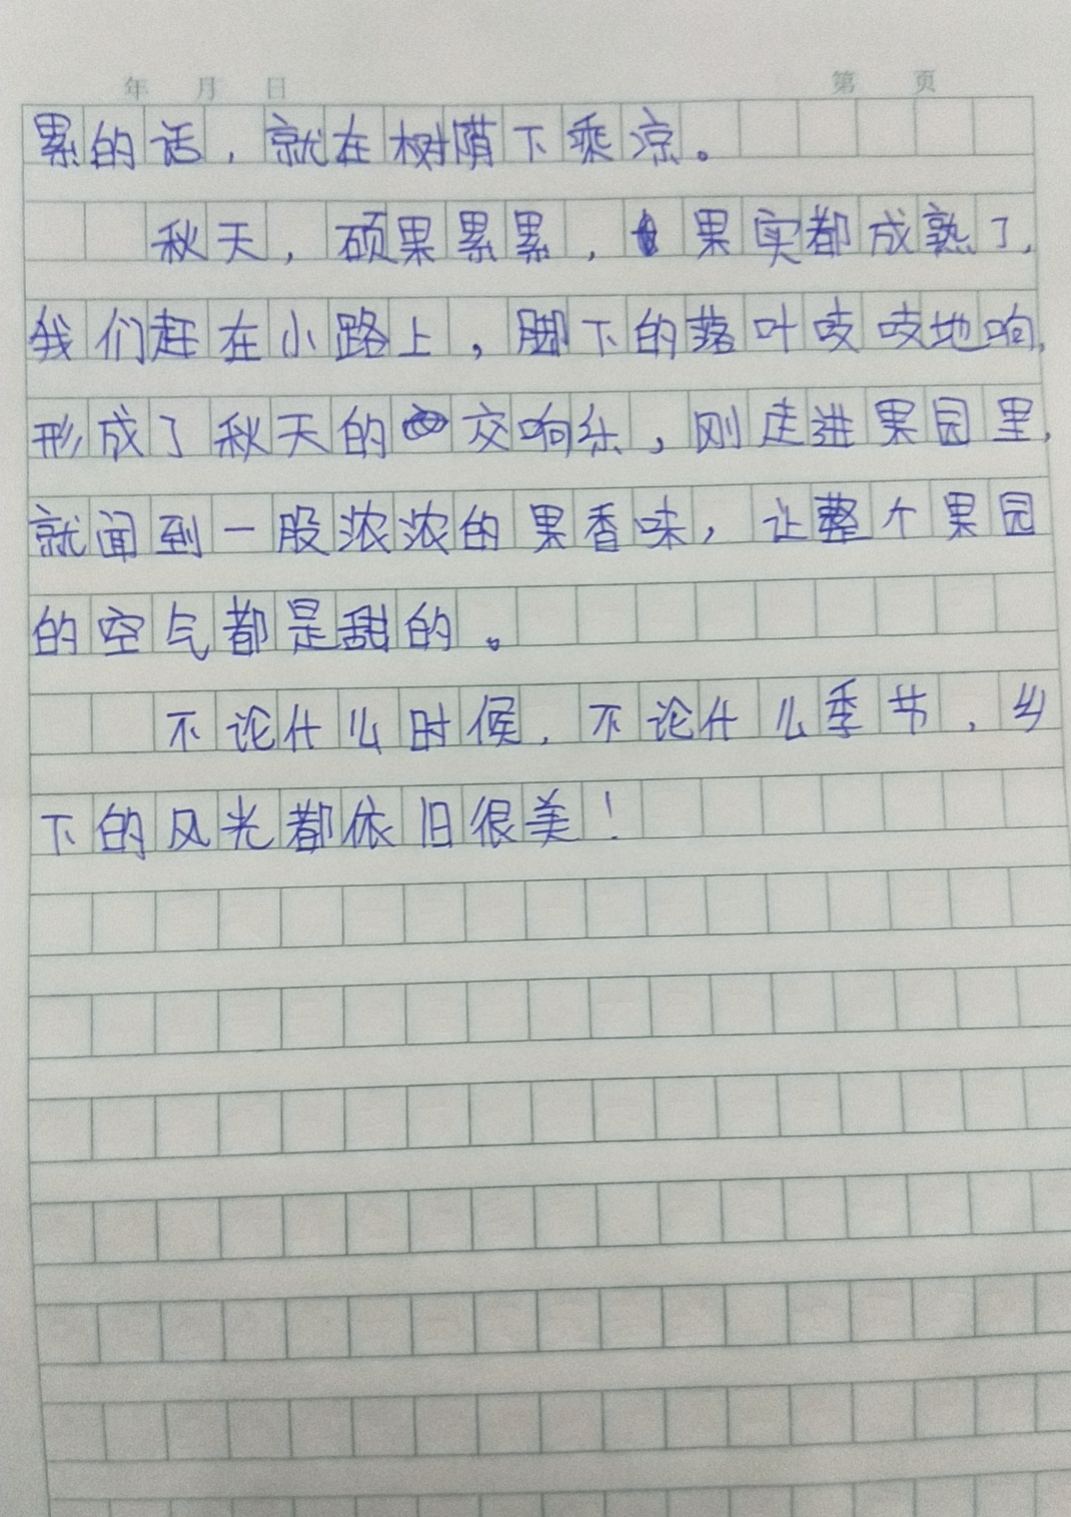 年 月 日 第 页
累的话，就在树荫下乘凉。
秋天，硕果累累，果实都成熟了，
我们赶在小路上，脚下的落叶吱吱地响，
形成了秋天的交响乐，刚走进果园里，
就闻到一股浓浓的果香味，让整个果园
的空气都是甜的。
不论什么时候，不论什么季节，乡
下的风光都依旧很美！